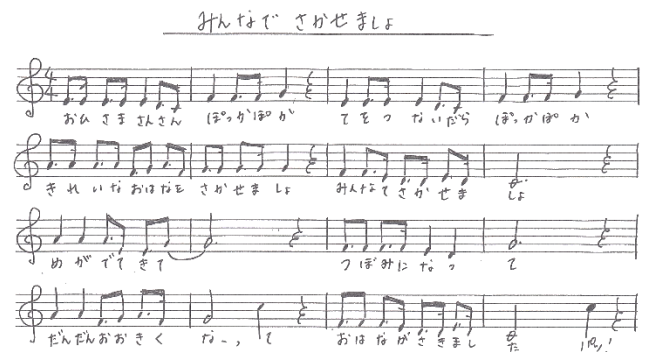 みんなで さかせましょ
おひさまさんさん ぽっかぽか てをつないだら ぽっかぽか
きれいなおはなを さかせましょ みんなでさかせましょ
めがでてきて つぼみになって
だんだんおおきくなーって おはながさきました パッ!